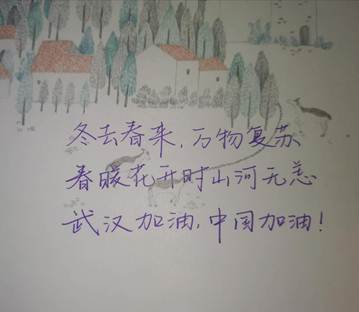 冬去春来,万物复苏
春暖花开时山河无恙
武汉加油,中国加油!